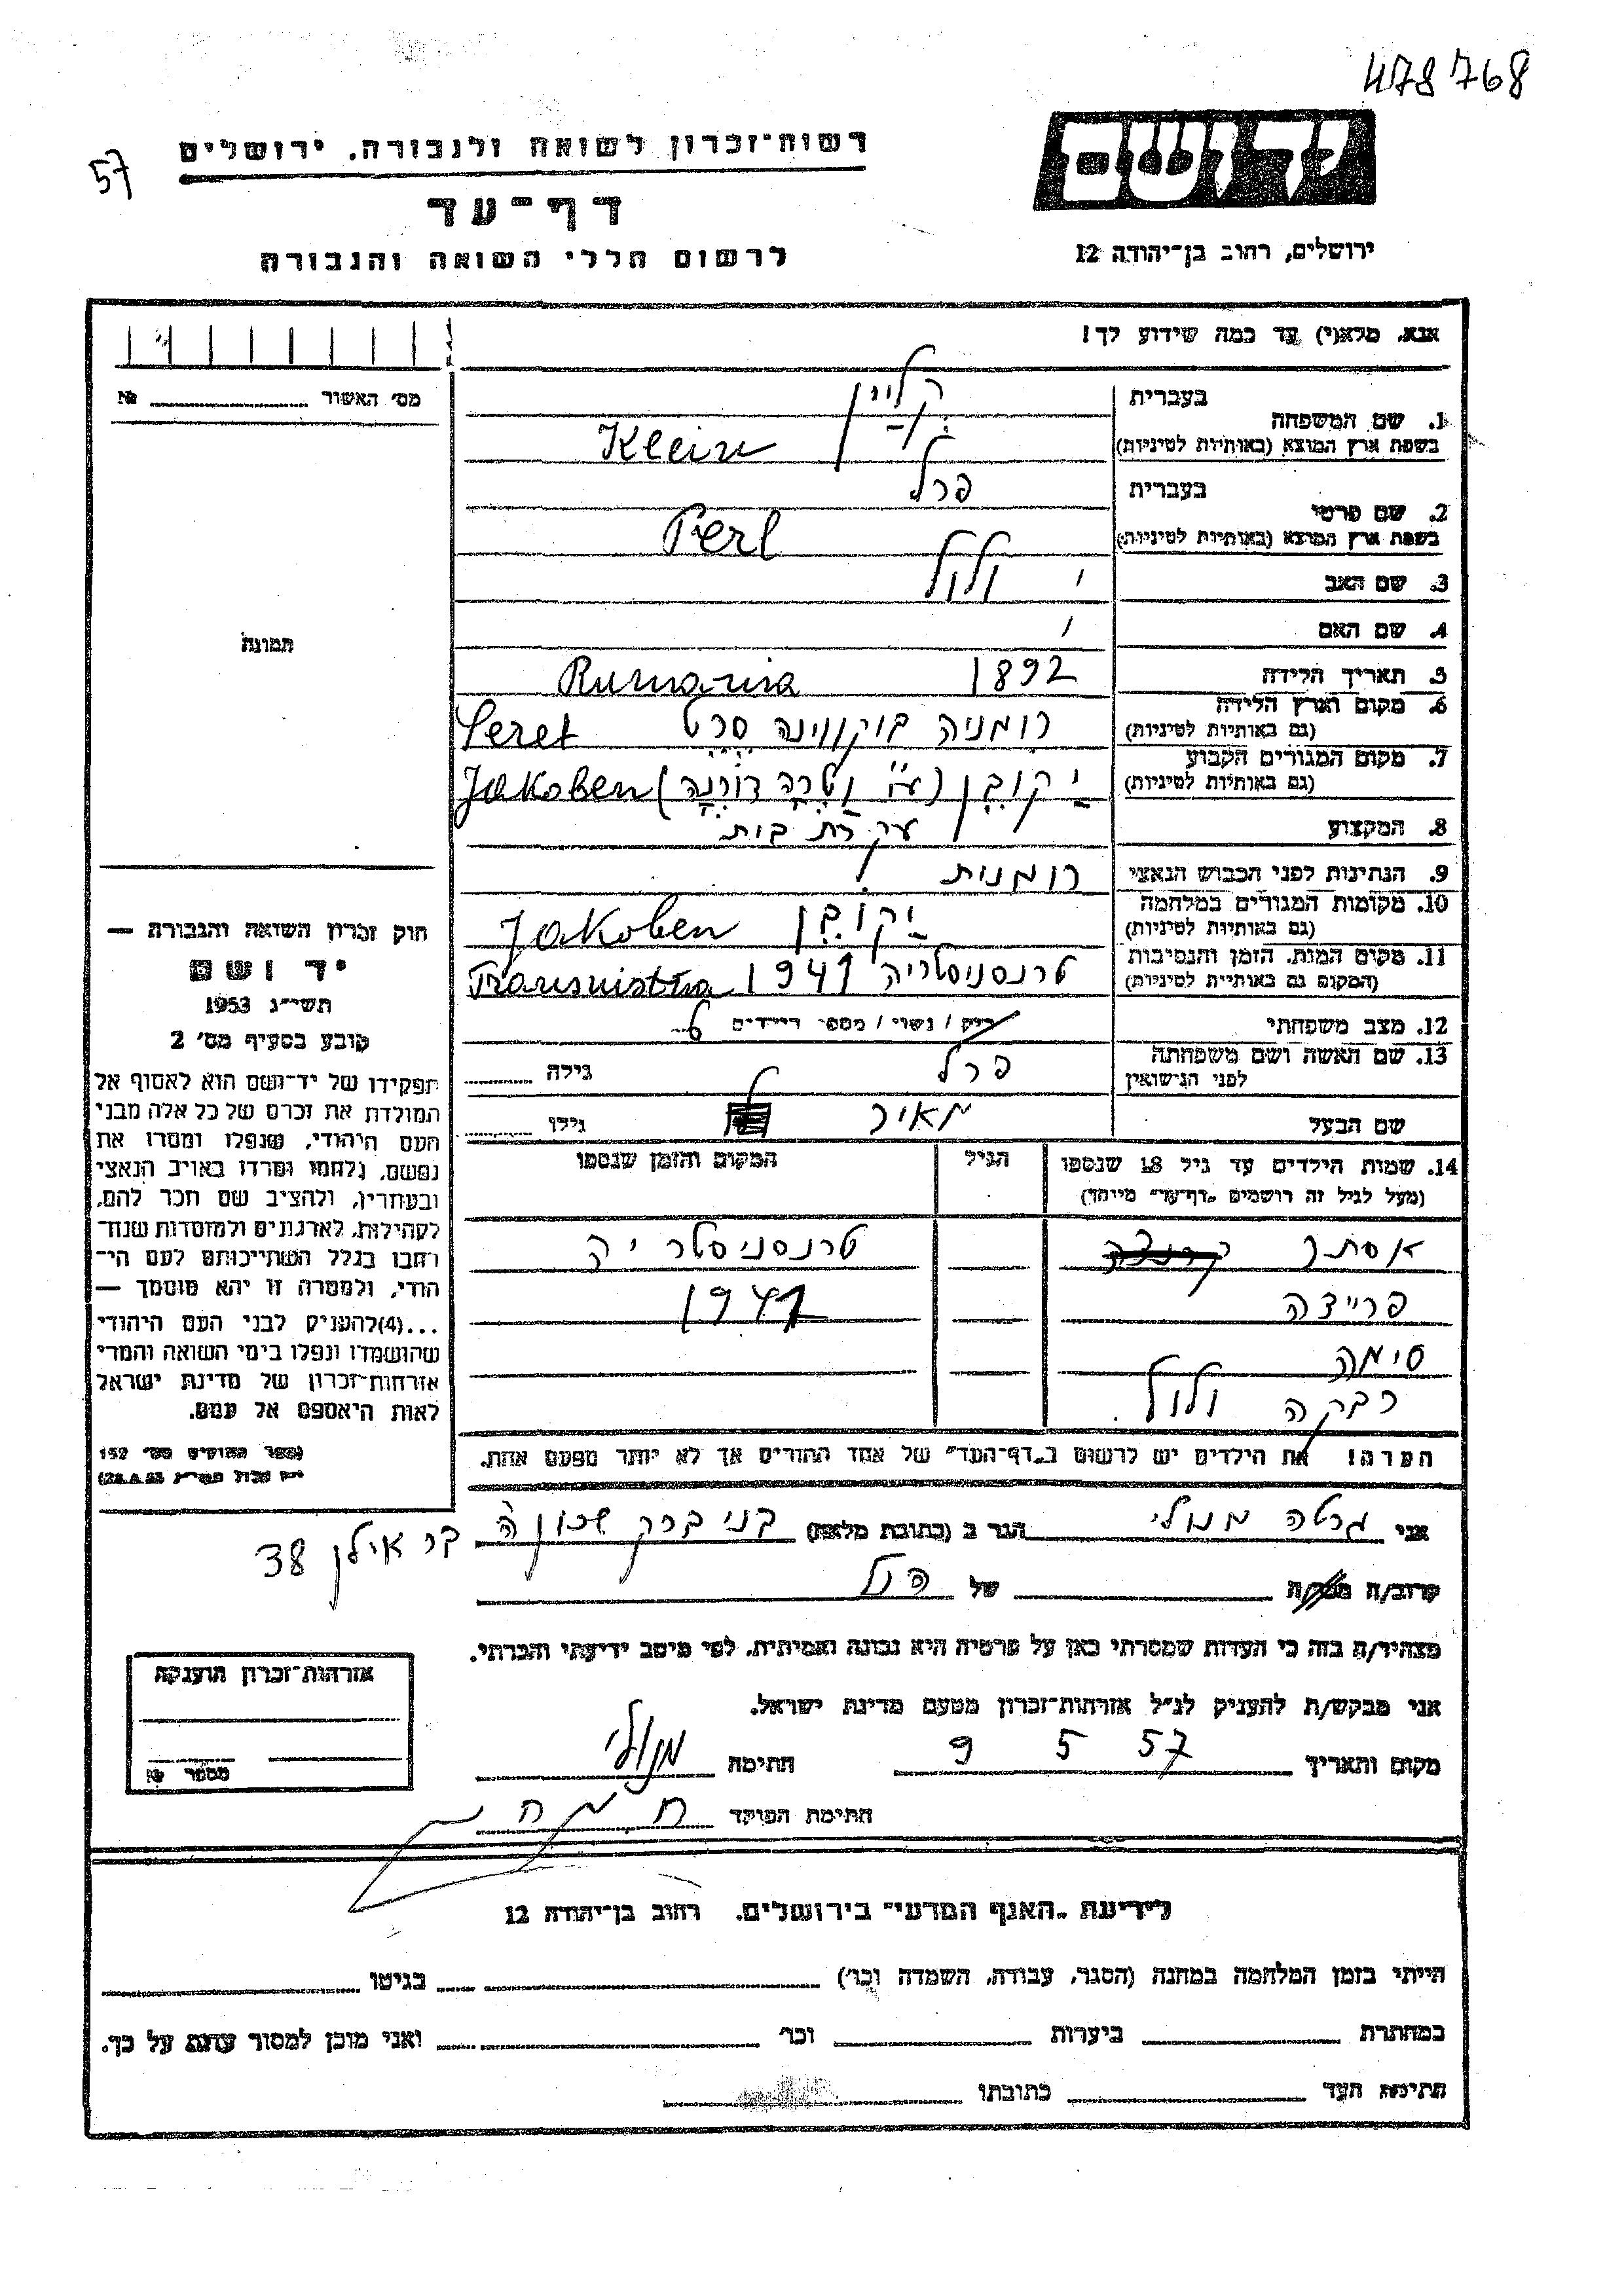 478768
57
רשות־זכרון לשואה ולגבורה. ירושלים
ידושם
דף־עד
ירושלים, רחוב בן־יהודה 12
לרשום חללי השואה והגבורה
אנא, מלא(י) עד כמה שידוע לך!
מס׳ האשור № 
בעברית
קליין
1. שם המשפחה
בשפת ארץ המוצא (באותיות לטיניות)
Klein
בעברית
פרל
2. שם פרטי
בשפת ארץ המוצא (באותיות לטיניות)
Perl
3. שם האב
ולול
4. שם האם
תמונה
5. תאריך הלידה
1892 Rumania
6. מקום וארץ הלידה
(גם באותיות לטיניות)
רומניה בוקווינה סֶרֶט Seret
7. מקום המגורים הקבוע
(גם באותיות לטיניות)
יַקוֹבֶן (ע״י וַטְרָה דוֹרְנָה) Jakoben
8. המקצוע
עקרת בית
9. הנתינות לפני הכבוש הנאצי
רומנית
10. מקומות המגורים במלחמה
(גם באותיות לטיניות)
יַקוֹבֶן Jakoben
11. מקום המות, הזמן והנסיבות
(המקום גם באותיות לטיניות)
טרנסניסטריה 1941 Transnistria
12. מצב משפחתי
רוק / נשוי / מספר הילדים 6
13. שם האשה ושם משפחתה
לפני הנישואין
פרל
גילה
שם הבעל
מאיר
גילו
14. שמות הילדים עד גיל 18 שנספו
(מעל לגיל זה רושמים ״דף־עד״ מיוחד)
הגיל
המקום והזמן שנספו
אסתר
טרנסניסטריה
פרייצה
1941
סימה
רבקה ולול
הערה! את הילדים יש לרשום ב״דף־העד״ של אחד ההורים אך לא יותר מפעם אחת.
חוק זכרון השואה והגבורה —
יד ושם
תשי״ג 1953
קובע בסעיף מס׳ 2
תפקידו של יד־ושם הוא לאסוף אל
המולדת את זכרם של כל אלה מבני
העם היהודי, שנפלו ומסרו את
נפשם, נלחמו ומרדו באויב הנאצי
ובעוזריו, ולהציב שם וזכר להם,
לקהילות, לארגונים ולמוסדות שנח־
רבו בגלל השתייכותם לעם הי־
הודי, ולמטרה זו יהא מוסמך —
...(4)להעניק לבני העם היהודי
שהושמדו ונפלו בימי השואה והמרי
אזרחות־זכרון של מדינת ישראל
לאות היאספם אל עמם.
(ספר החוקים מס׳ 132
אני גרטה מנולי הגר ב (כתובת מלאה) בני ברק שכונה בר אילן 38
קרוב/ה מכר/ה של הנ״ל
מצהיר/ה בזה כי העדות שמסרתי כאן על פרטיה היא נכונה ואמיתית, לפי מיטב ידיעתי והכרתי.
אזרחות־זכרון הוענקה
אני מבקש/ת להעניק לנ״ל אזרחות־זכרון מטעם מדינת ישראל.
מקום ותאריך 9 5 57 חתימה מנולי
מספר №
חתימת הפוקד
לידיעת ״האגף המדעי״ בירושלים. רחוב בן־יהודה 12
הייתי בזמן המלחמה במחנה (הסגר, עבודה, השמדה וכו׳) בגיטו
במחתרת ביערות וכו׳ ואני מוכן למסור עדות על כך.
חתימת העד כתובתו